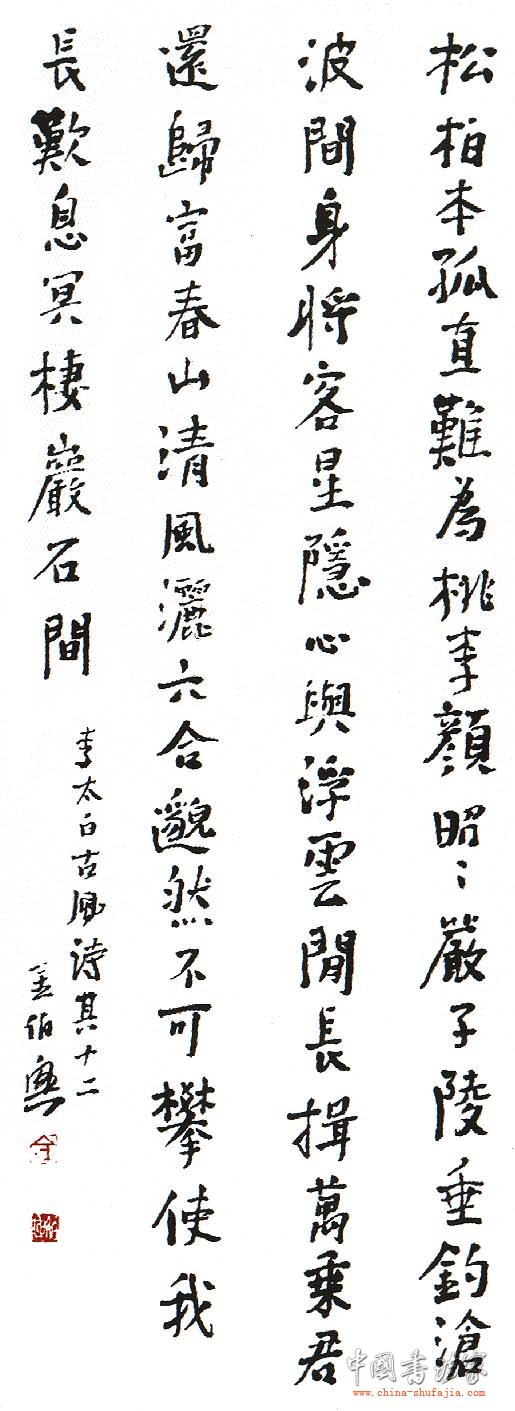 松柏本孤直難為桃李顏昭〻嚴子陵垂釣滄
波間身將客星隱心與浮雲閒長揖萬乘君
還歸富春山清風灑六合邈然不可攀使我
長歎息冥棲巖石間
李太白古風詩其十二
中國書法家
www.china-shufajia.com